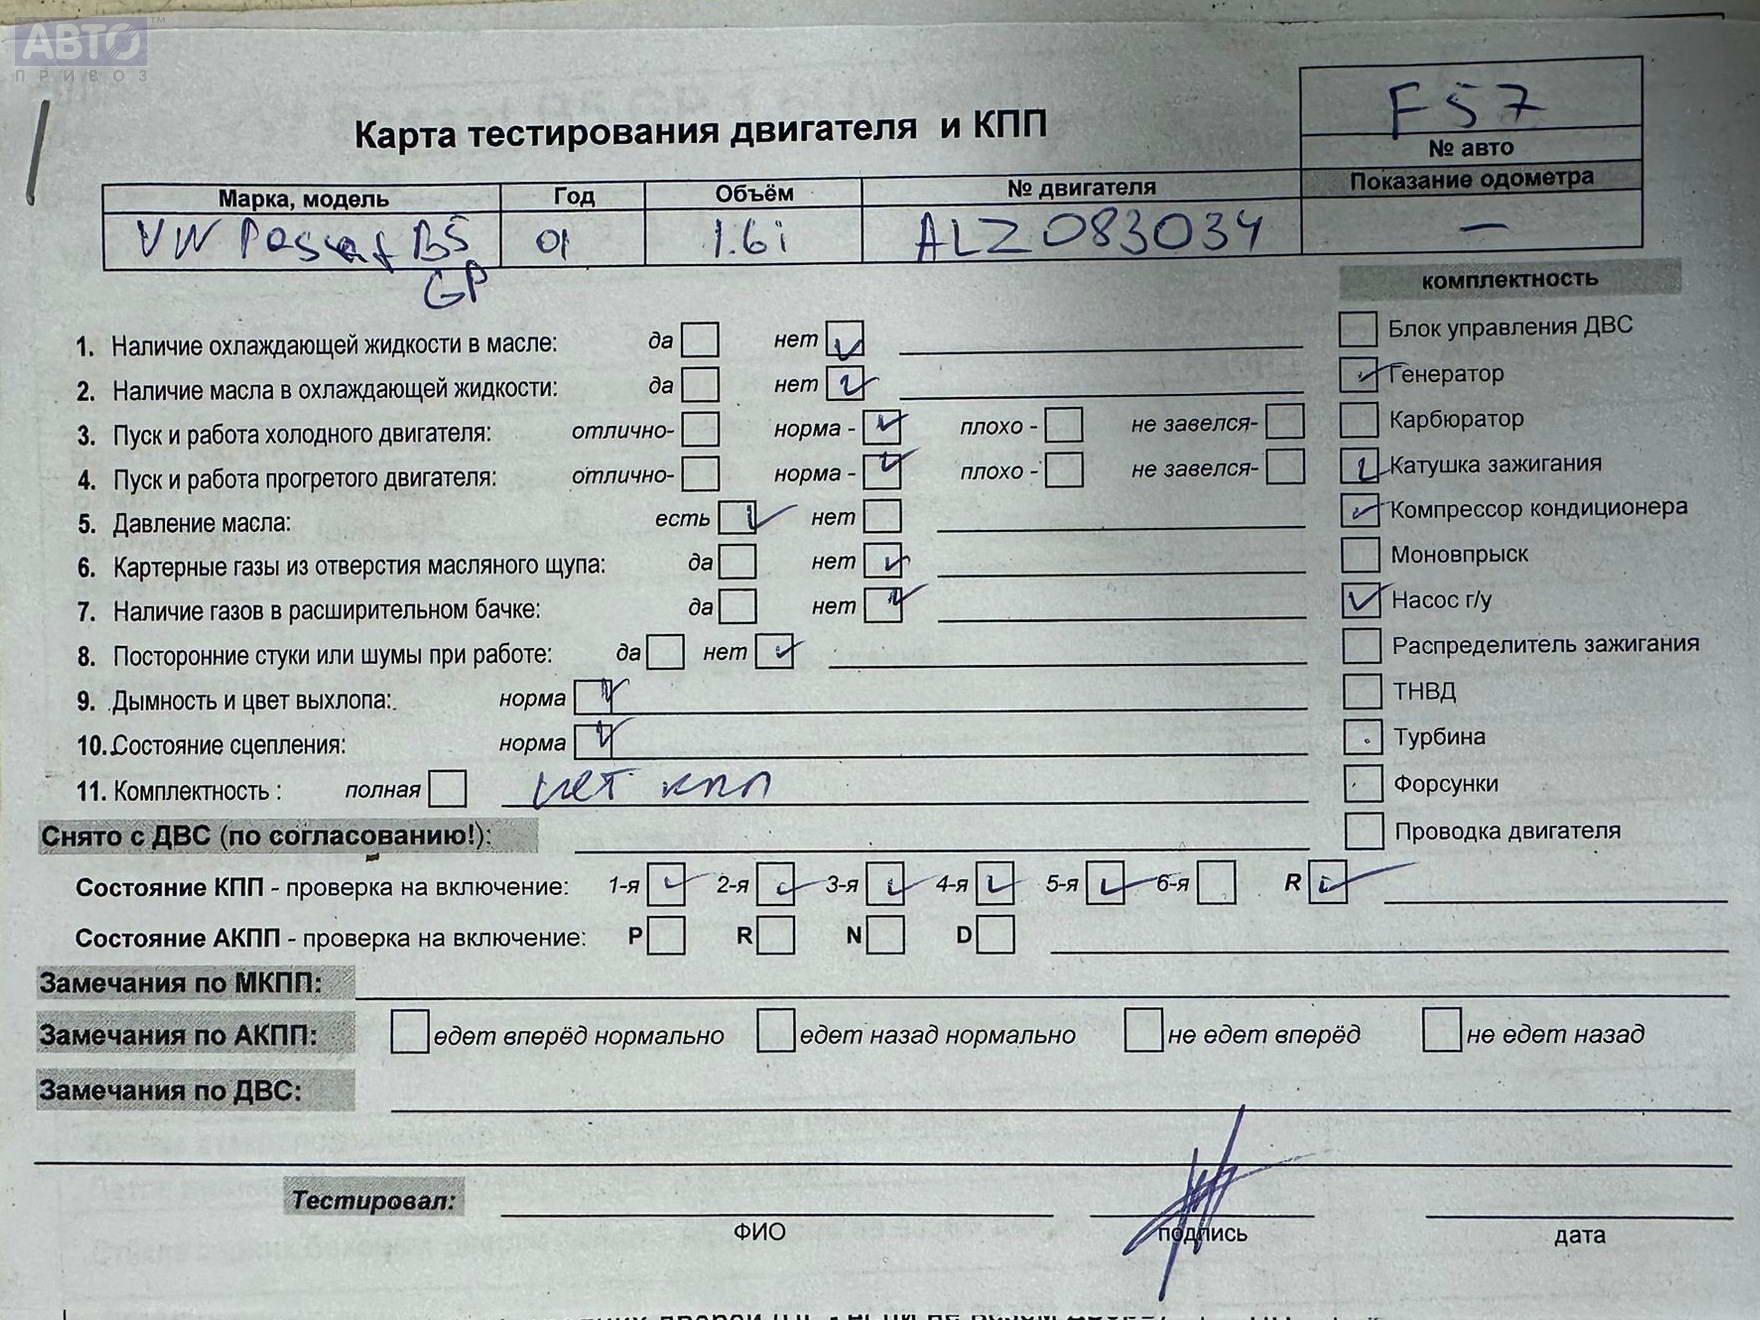 АВТО™
ПРИВОЗ
F57
№ авто
Карта тестирования двигателя и КПП
Марка, модель Год Объём № двигателя Показание одометра
VW Passat B5 01 1.6i ALZ083034 —
GP
комплектность
1. Наличие охлаждающей жидкости в масле: да нет
Блок управления ДВС
2. Наличие масла в охлаждающей жидкости: да нет
Генератор
3. Пуск и работа холодного двигателя: отлично- норма - плохо - не завелся-
Карбюратор
4. Пуск и работа прогретого двигателя: отлично- норма - плохо - не завелся-
Катушка зажигания
5. Давление масла: есть нет
Компрессор кондиционера
6. Картерные газы из отверстия масляного щупа: да нет
Моновпрыск
7. Наличие газов в расширительном бачке: да нет
Насос г/у
8. Посторонние стуки или шумы при работе: да нет
Распределитель зажигания
9. Дымность и цвет выхлопа: норма
ТНВД
10. Состояние сцепления: норма
Турбина
11. Комплектность : полная нет кпп
Форсунки
Снято с ДВС (по согласованию!):
Проводка двигателя
Состояние КПП - проверка на включение: 1-я 2-я 3-я 4-я 5-я 6-я R
Состояние АКПП - проверка на включение: P R N D
Замечания по МКПП:
Замечания по АКПП: едет вперёд нормально едет назад нормально не едет вперёд не едет назад
Замечания по ДВС:
Тестировал:
ФИО подпись дата